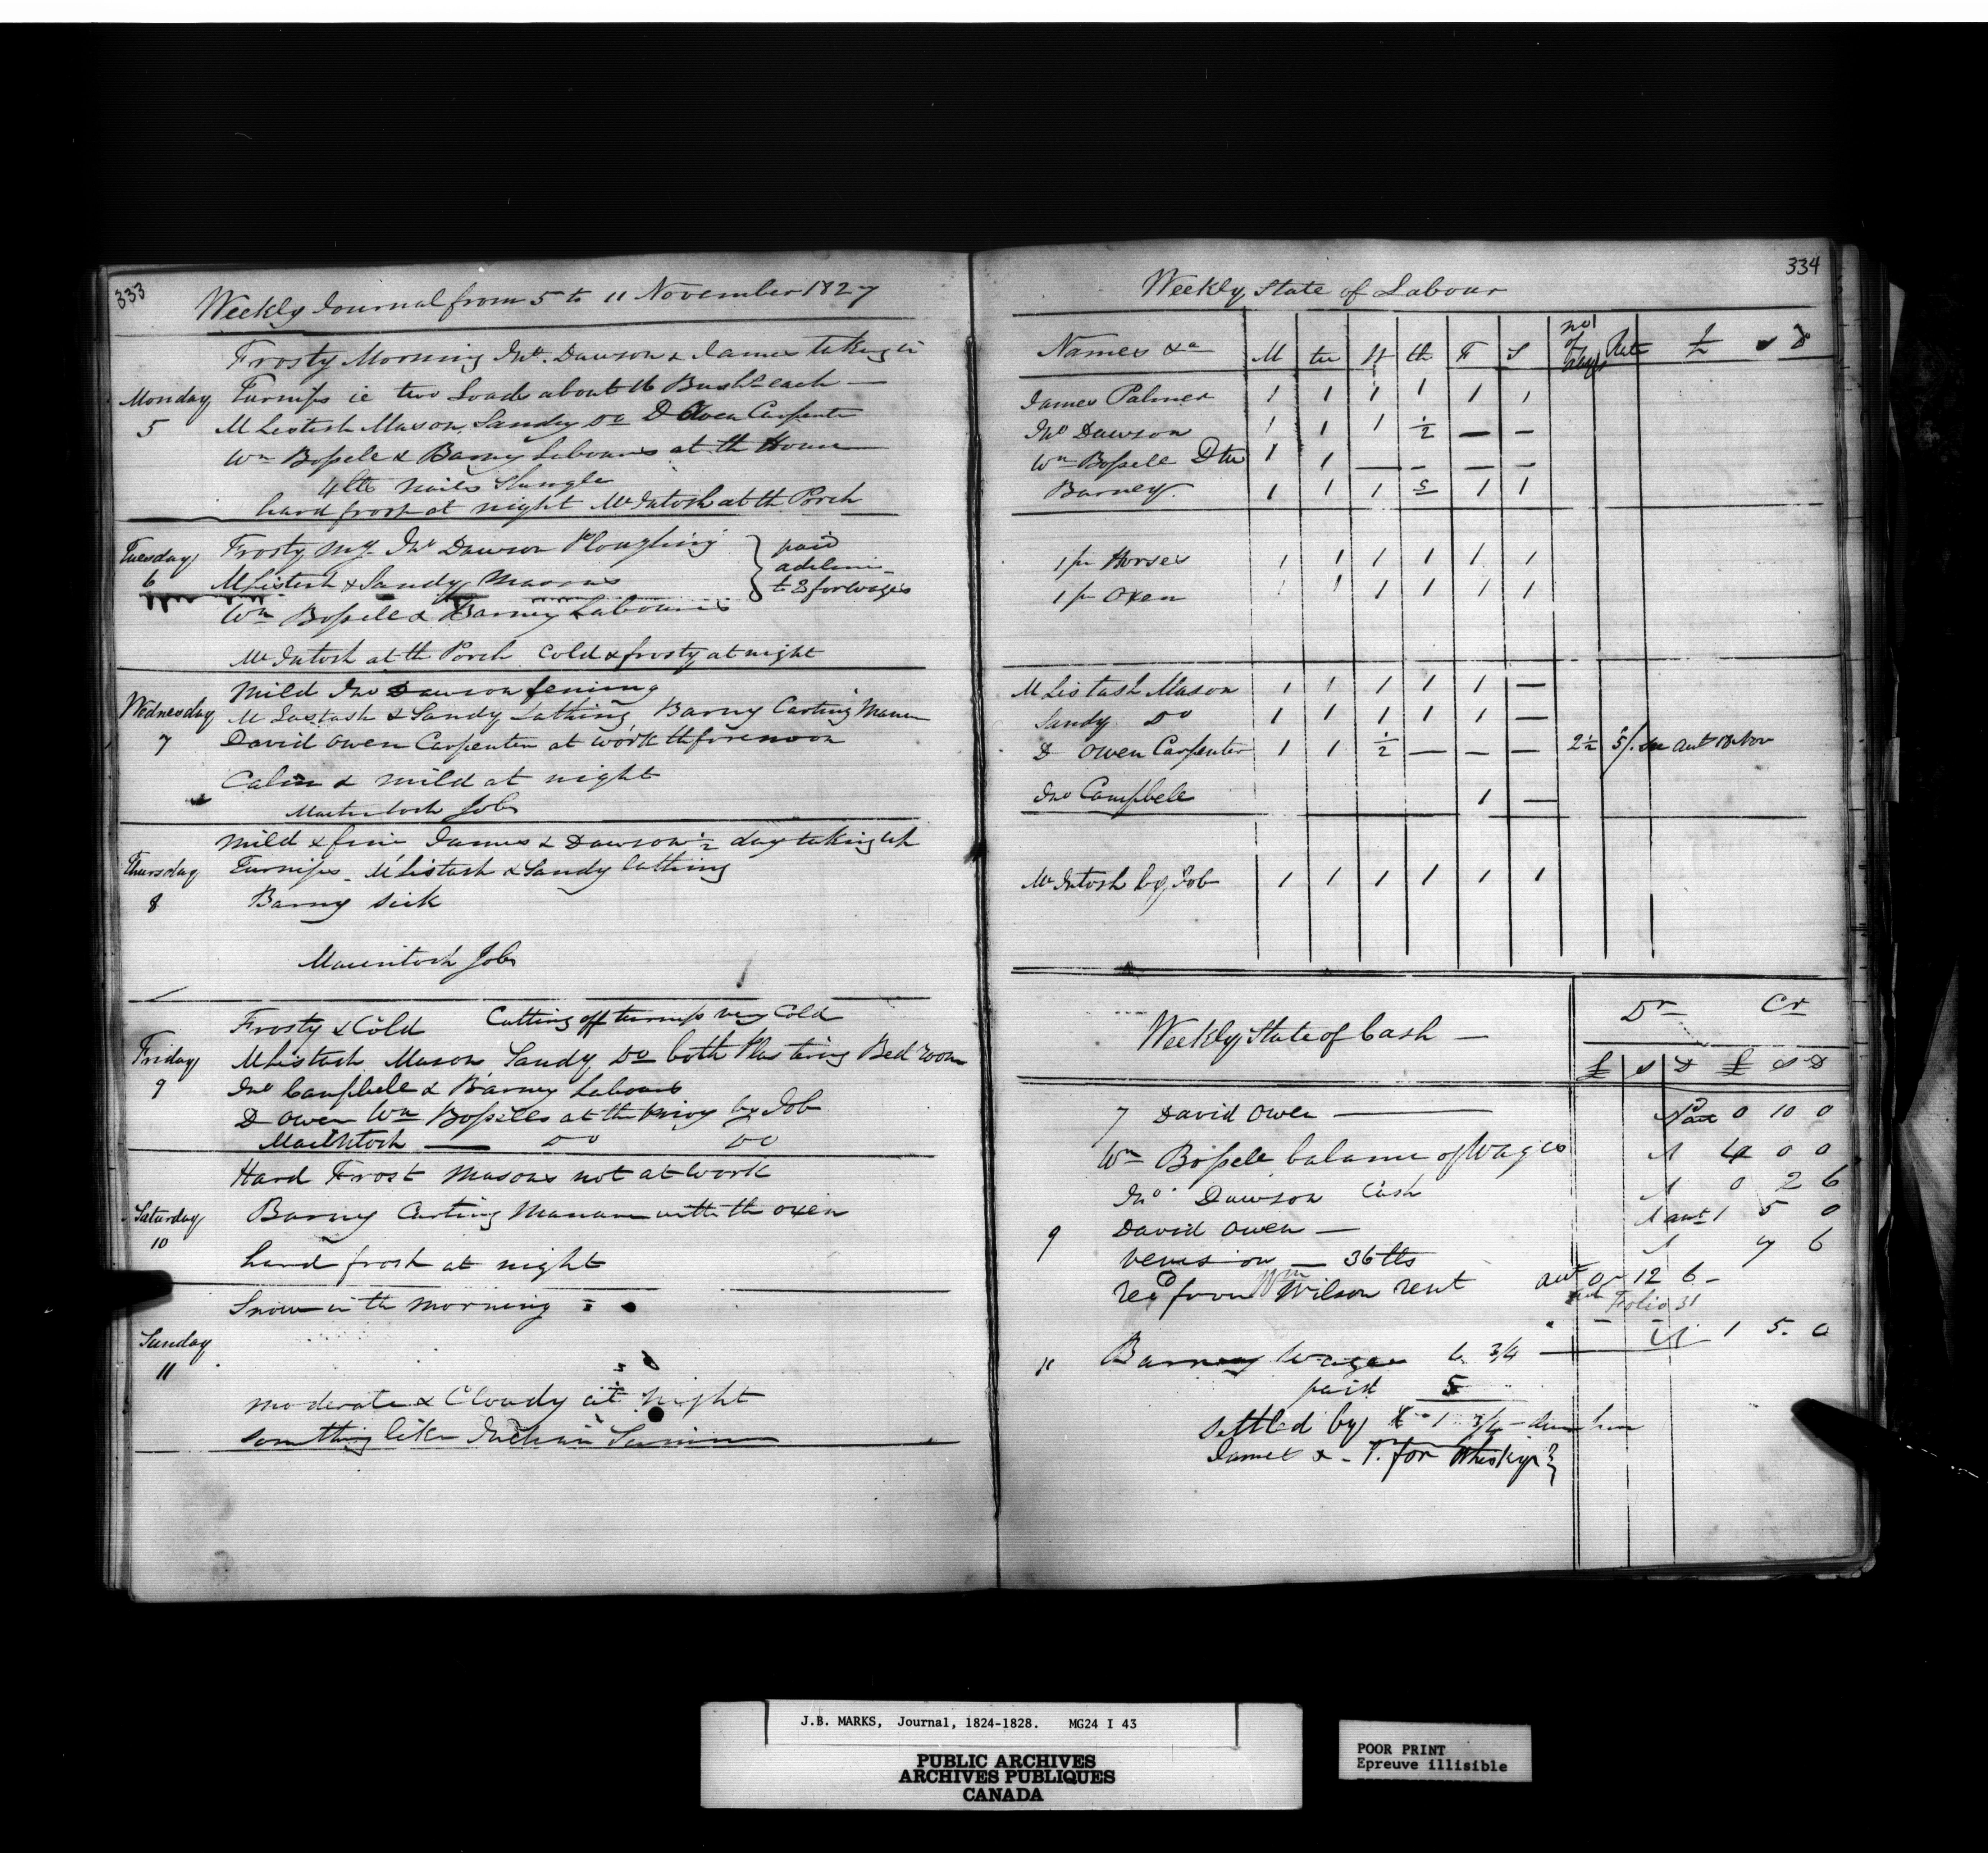 333
Weekly Journal from 5 to 11 November 1827
Frosty Morning Jno. Dawson & James taking in
Monday Turnips ie two Loads about 16 Bushls each —
5 McListash Mason, Sandy Do D Owen Carpenter
Wm Bossele & Barny Labourers at th House
4 lbs nails Shingle
hard frost at night McIntosh at th Porch
Tuesday Frosty Mg Jno Dawson Ploughing } paid
6 McListash & Sandy Masons
to 2 for wages
Wm Bossele & Barney Labourers
McIntosh at th Porch Cold & frosty at night
Mild Jno Dawson fencing
Wednesday McListash & Sandy Lathing, Barny Carting Manure
7 David Owen Carpenter at work th forenoon
Calm & mild at night
Macintosh Job
Mild & fine James & Dawson ½ day taking up
Thursday Turnips - McListash & Sandy lathing
8 Barny sick
Macintosh Job
Frosty & Cold Cutting off turnips very Cold
Friday McListash Mason, Sandy Do both Plastering Bed room
9 Jno Campbell & Barney Labours
D Owen Wm Bosseles at th Privy by Job
MacIntosh — Do Do
Hard Frost Masons not at work
Saturday Barny Carting Manure with th oxen
10
hard frost at night
Snow in th morning
Sunday
11
moderate & Cloudy at night
something like Indian Summer
334
Weekly State of Labour
Names &a M tu W th F S no of days Rate £ s D
James Palmer 1 1 1 1 1 1
Jno Dawson 1 1 1 ½ — —
Wm Bossele 1 1 — — — —
Barney 1 1 1 S 1 1
1 pr Horses 1 1 1 1 1 1
1 pr Oxen 1 1 1 1 1 1
McListash Mason 1 1 1 1 1 —
Sandy Do 1 1 1 1 1 —
D Owen Carpenter 1 1 ½ — — — 2½ 5/. Nov
Jno Campbell 1 —
McIntosh by Job 1 1 1 1 1 1
Weekly State of Cash — Dr Cr
£ s D £ s D
7 David Owen — 0 10 0
Wm Bossele balance of Wages 4 0 0
Jno Dawson Cash 0 2 6
9 David Owen — 1 5 0
venison — 36 lbs 7 6
recd from Wm Wilson rent 0 12 6 -
Folio 31
11 Barney Wages 6 3/4 — 1 5. 0
paid 5
settled by
James & for Whiskys }